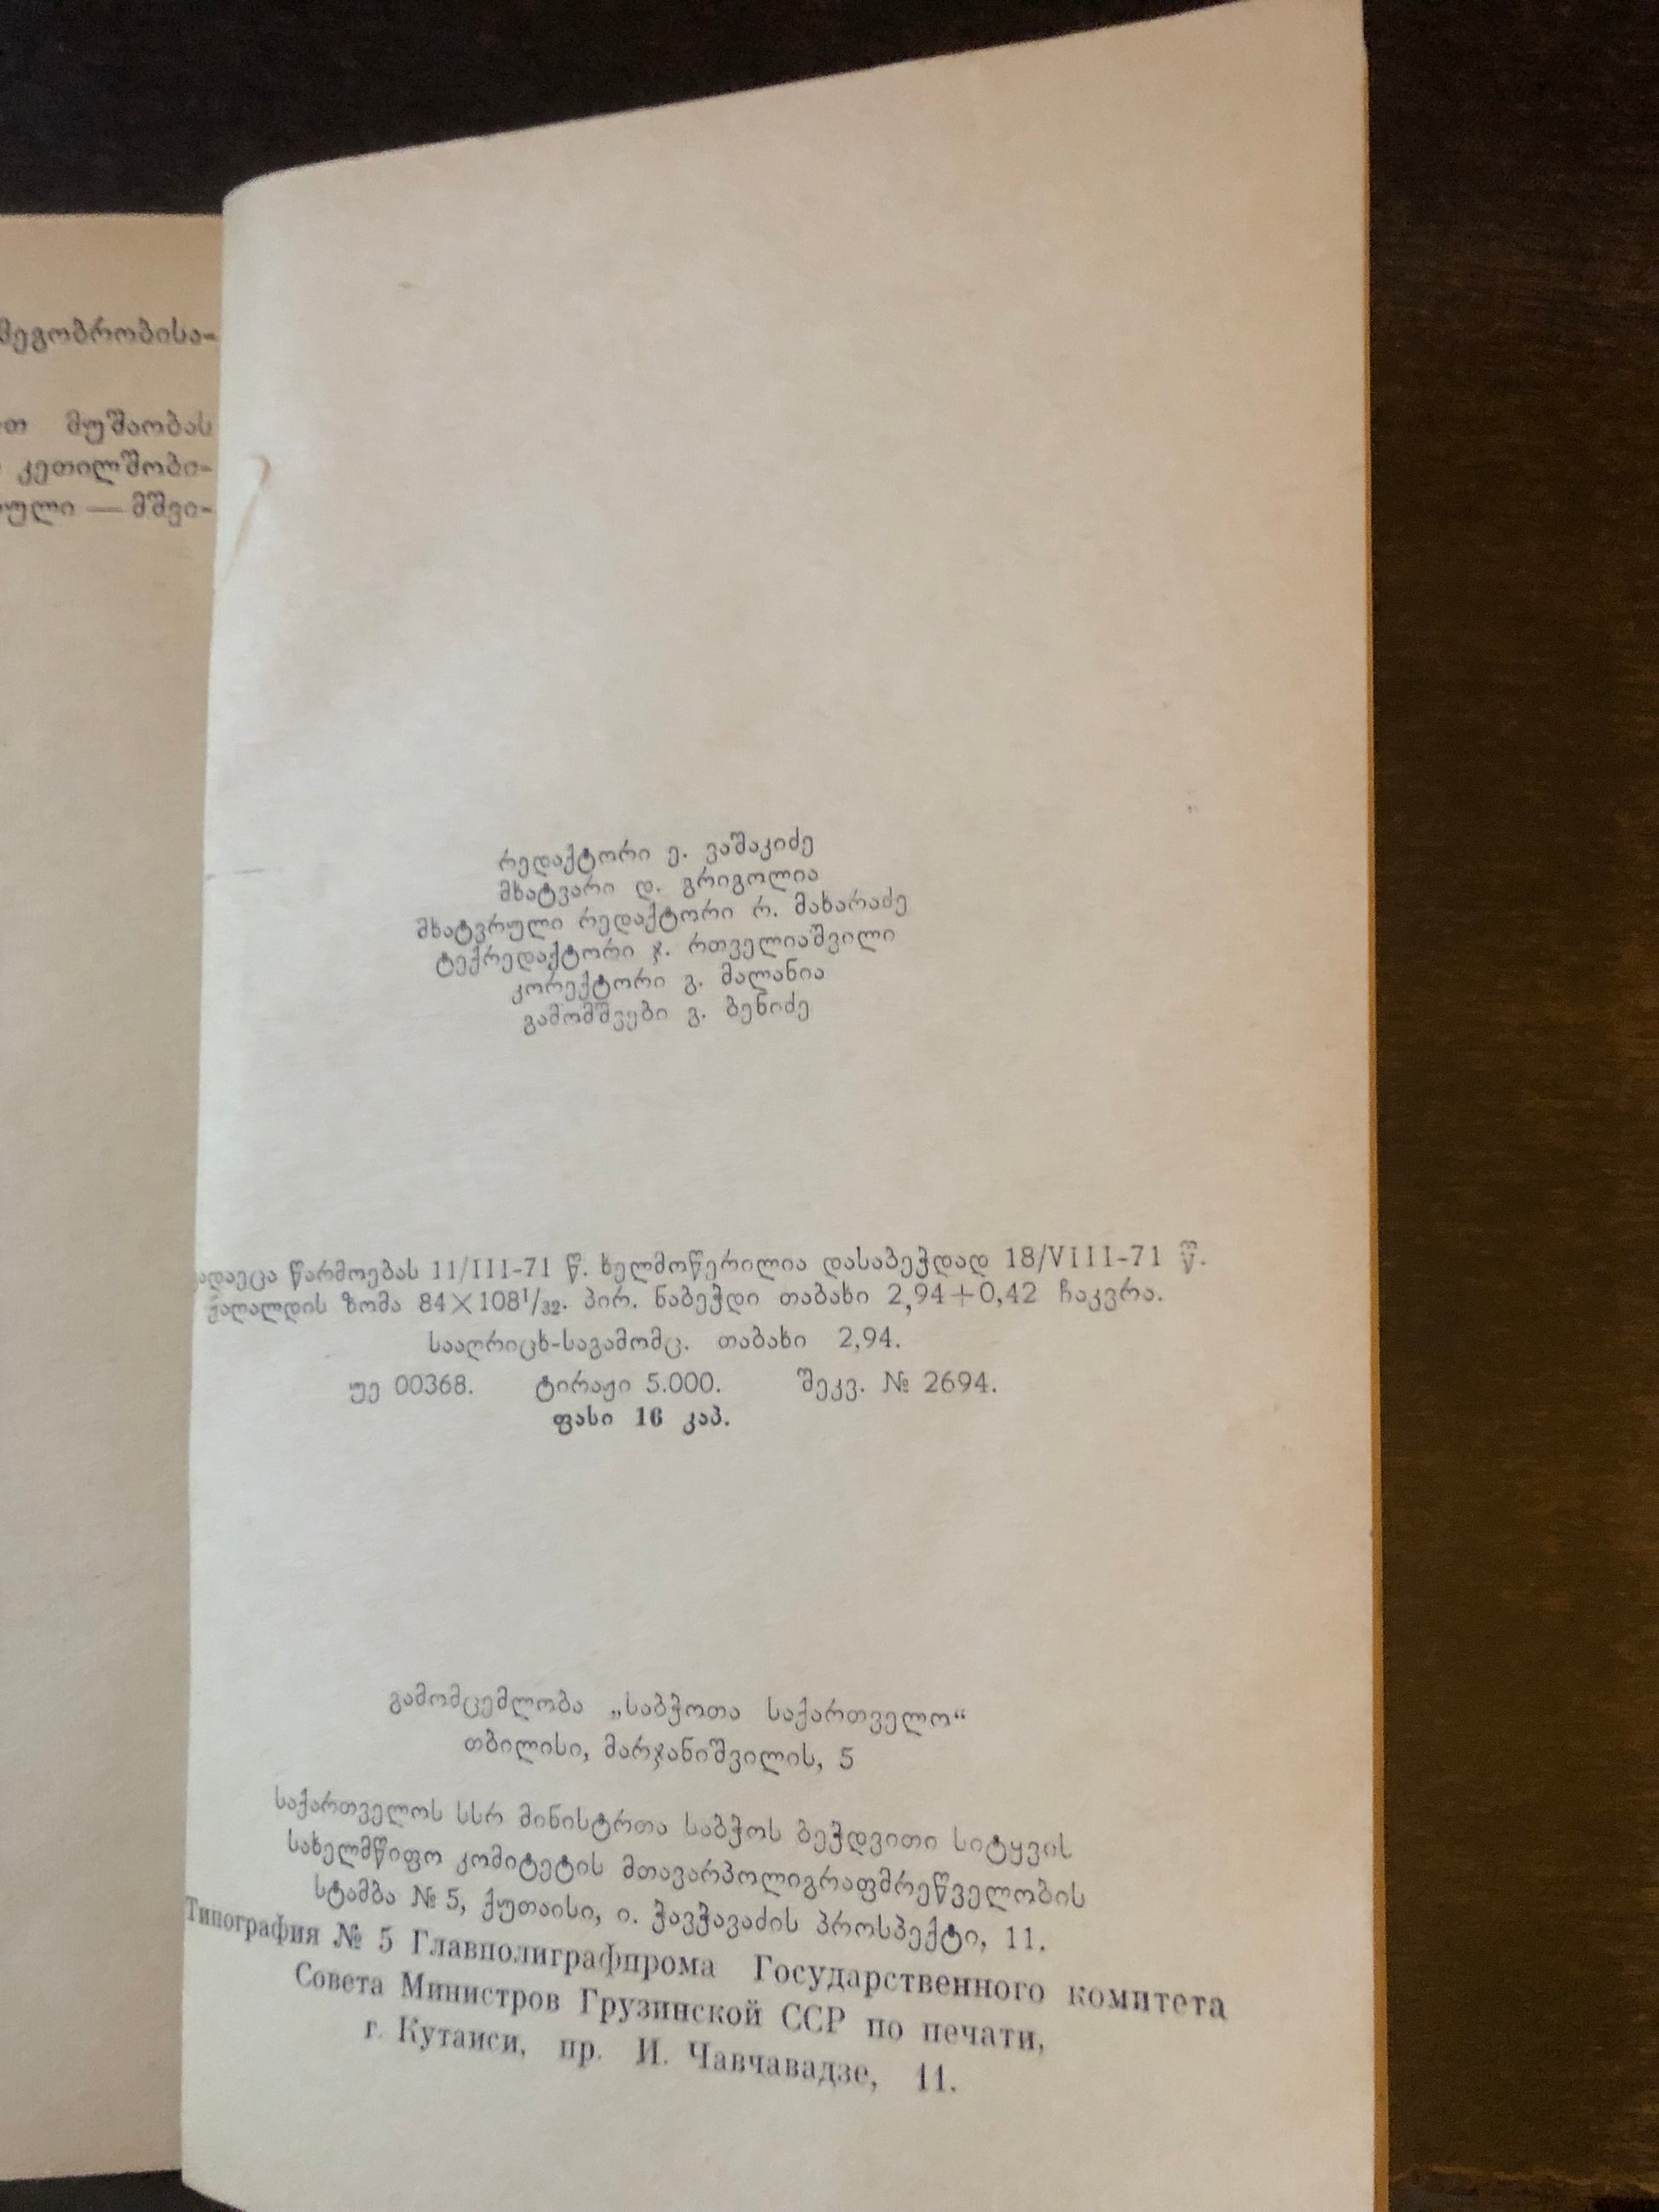 მეგობრობისა-
მუშაობას
კეთილშობი-
— მშვი-
რედაქტორი ე. ვაშაკიძე
მხატვარი დ. გრიგოლია
მხატვრული რედაქტორი რ. მახარაძე
ტექრედაქტორი ჯ. რთველიაშვილი
კორექტორი გ. მალანია
გამომშვები გ. ბენიძე
გადაეცა წარმოებას 11/III-71 წ. ხელმოწერილია დასაბეჭდად 18/VIII-71 წ.
ქაღალდის ზომა 84×108¹/₃₂. პირ. ნაბეჭდი თაბახი 2,94+0,42 ჩაკვრა.
სააღრიცხ-საგამომც. თაბახი 2,94.
უე 00368. ტირაჟი 5.000. შეკვ. № 2694.
ფასი 16 კაპ.
გამომცემლობა „საბჭოთა საქართველო“
თბილისი, მარჯანიშვილის, 5
საქართველოს სსრ მინისტრთა საბჭოს ბეჭდვითი სიტყვის
სახელმწიფო კომიტეტის მთავარპოლიგრაფმრეწველობის
სტამბა № 5, ქუთაისი, ი. ჭავჭავაძის პროსპექტი, 11.
Типография № 5 Главполиграфпрома Государственного комитета
Совета Министров Грузинской ССР по печати,
г. Кутаиси, пр. И. Чавчавадзе, 11.